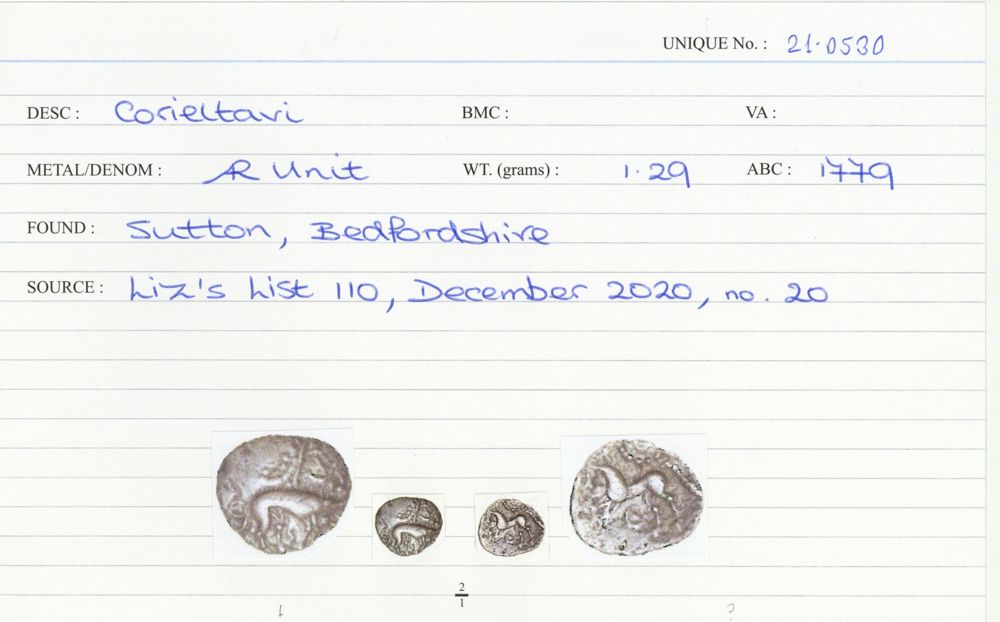 UNIQUE No. : 21.0530
DESC : Corieltavi BMC : VA :
METAL/DENOM : AR Unit WT. (grams) : 1.29 ABC : 1779
FOUND : Sutton, Bedfordshire
SOURCE : Liz's List 110, December 2020, no. 20
2
1